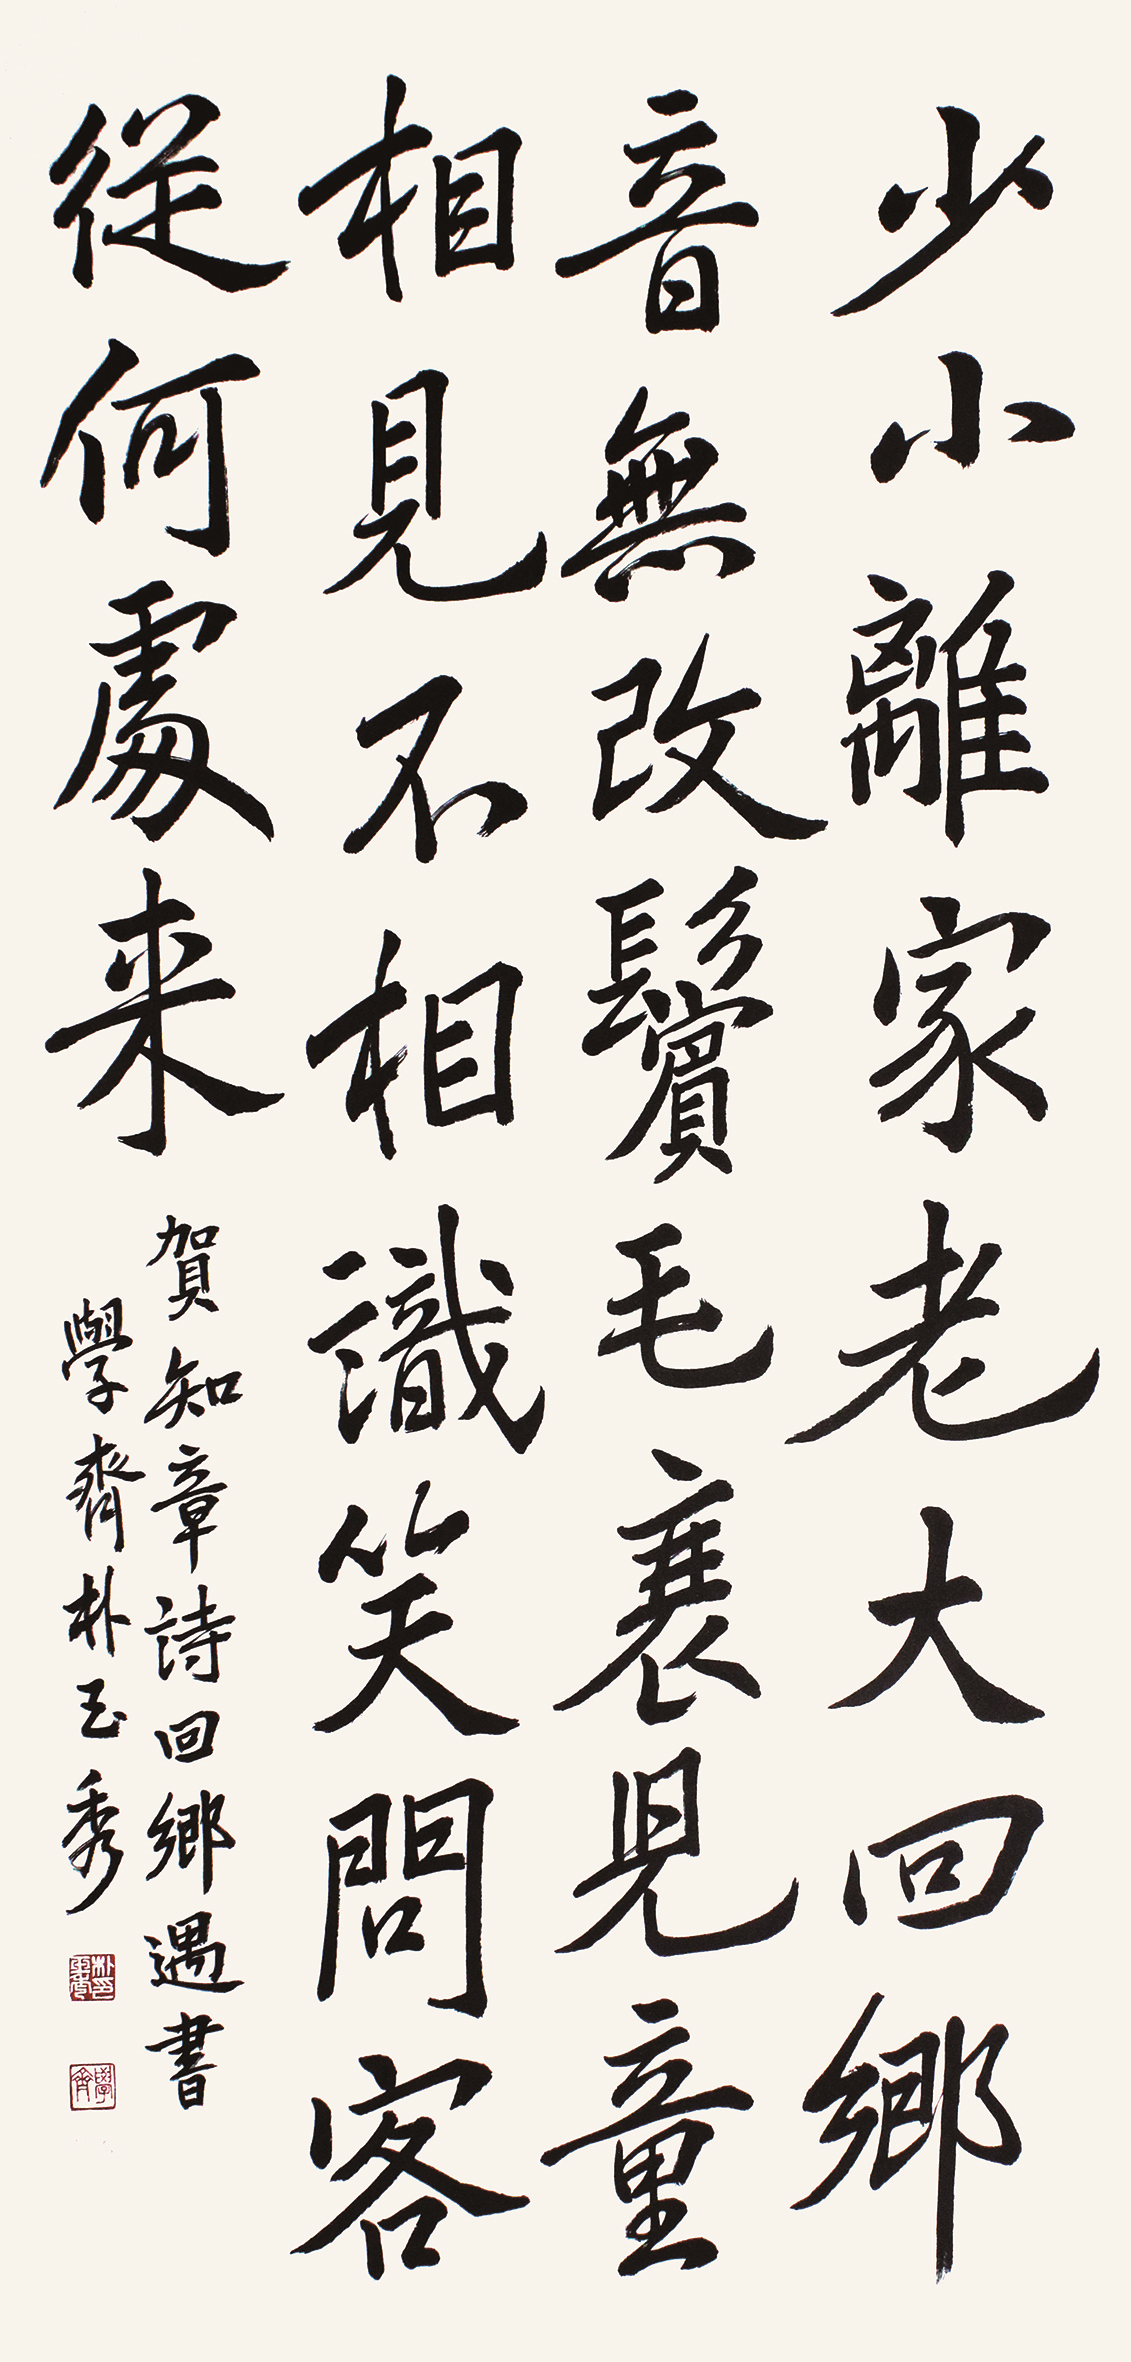 少小離家老大回鄉
音無改鬢毛衰兒童
相見不相識笑問客
從何處来
賀知章詩回鄉遇書
學齊朴玉秀
朴印玉秀
學齊